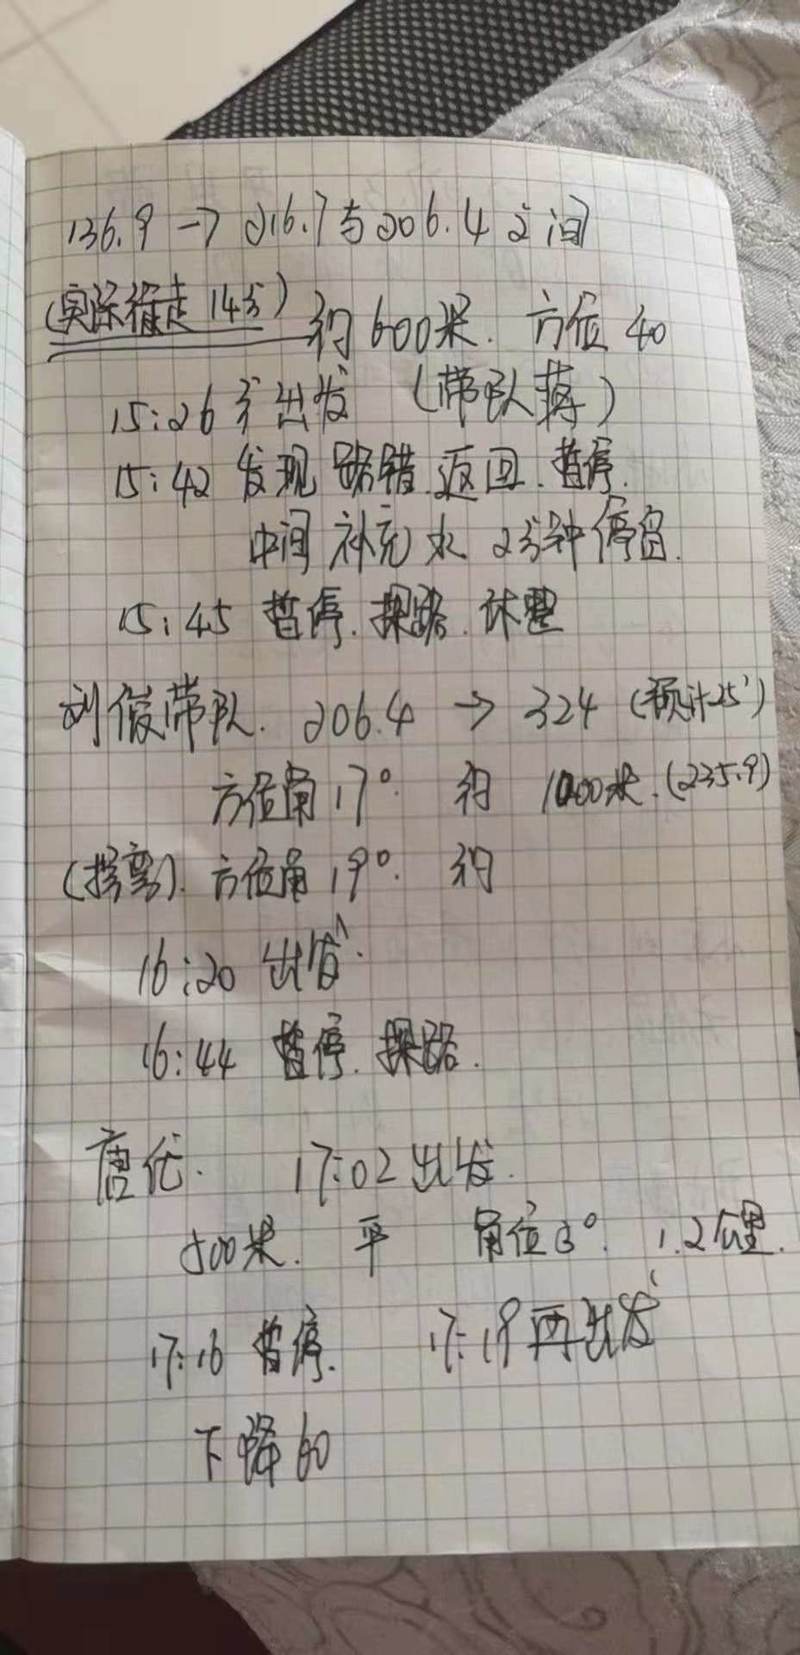 136.9 → 216.7与206.4之间
(实际行走14分) 约600米. 方位40
15:26分出发 (带队蒋)
15:42 发现路错.返回.暂停.
中间补充水 2分钟停留.
15:45 暂停.探路.休整
刘俊带队. 206.4 → 324 (预计25')
方位角17° 约 1000米.(235.9)
方位角19°. 约
16:20 出发.
16:44 暂停.探路.
唐优. 17:02出发.
500米. 平 角位3°. 1.2公里.
17:16 暂停. 17:19再出发
下降60